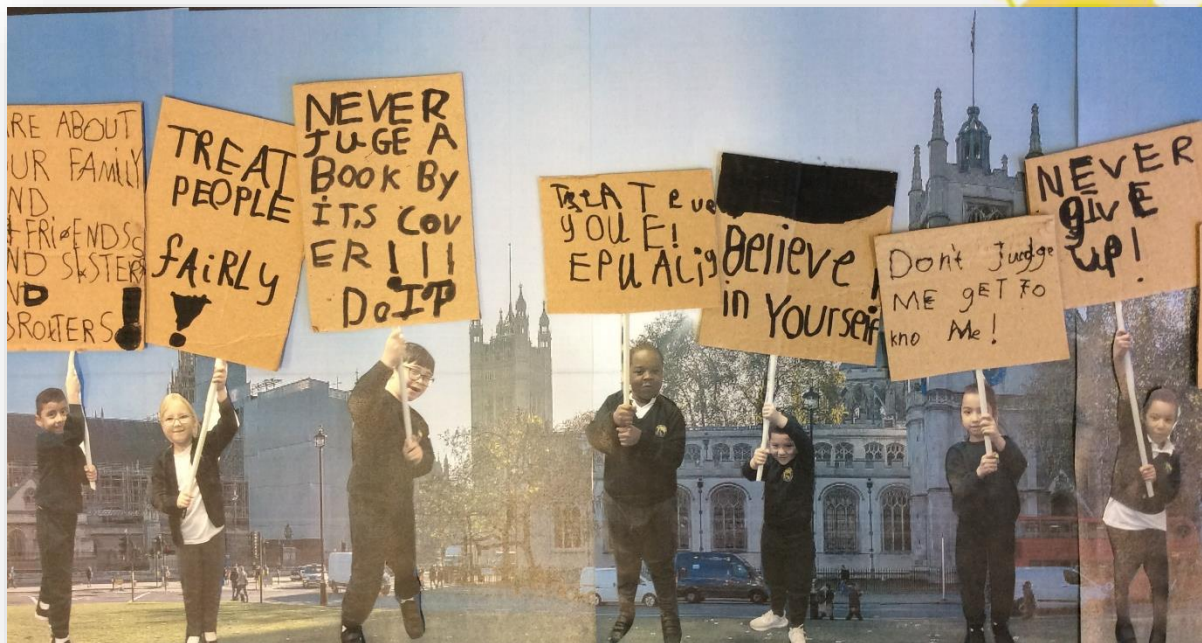 ARE ABOUT
UR FAMILY
ND
FRiENDS
ND SiSTER
ND
BROtTERS!
TREAT
PEOPLE
fAiRLy
!
NEVER
JUGE A
BOOK By
ITS COV
ER!!!
DoIT
TREAT eve
yOU E!
EPUALig
Believe
in Yourself
Don't Judge
ME gET To
kno Me!
NEVER
giVE
up!